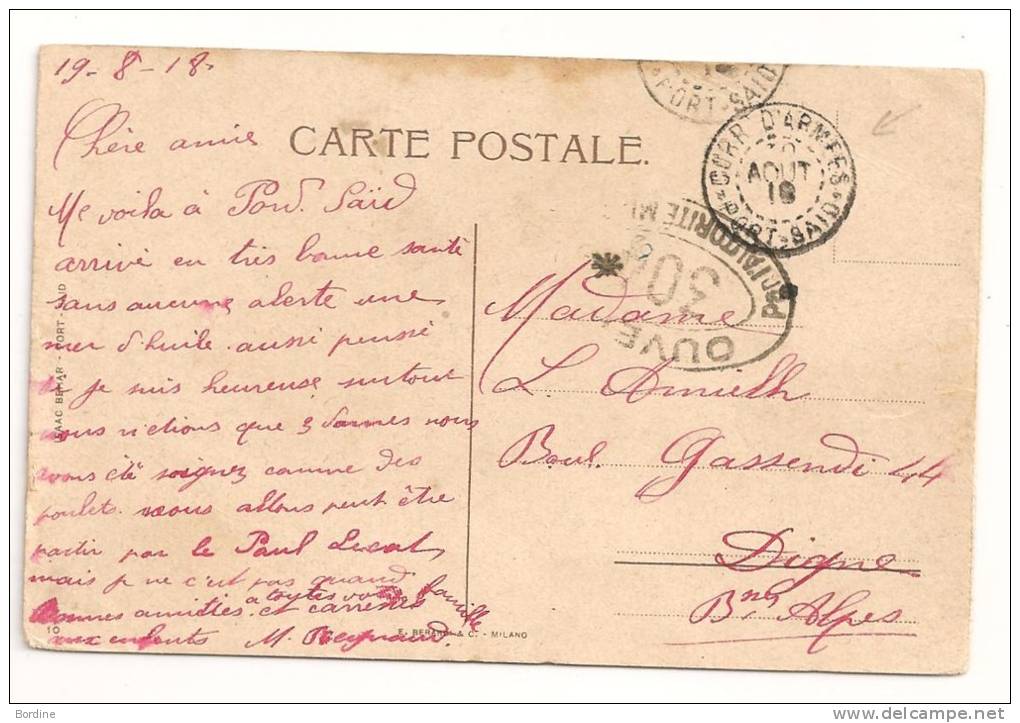 19-8-18.
Chère amie
CARTE POSTALE.
Me voila à Port. Saïd
arrivé en très bonne santé
sans aucune alerte une
mer d'huile. aussi pensée
si je suis heureuse surtout
nous n'etions que 3 dames nous
avons été soignez comme des
poulets. nous allons peut être
partir par le Paul Lecat,
mais je ne c'est pas quand
bonnes amitiés a toutes votre famille
et carresses
aux enfants M. Reynaud.
Madame
L. 
Boul. Gassendi 44
Digne
Bses Alpes
CORR. D'ARMEES
AOUT
18
PORT-SAID
18
PORT-SAID
OUVE
PAR L'AUTORITE MI
30
ISAAC BEHAR - PORT-SAID
10
E. BERARDI & C. - MILANO
Bordine
delcampe.net